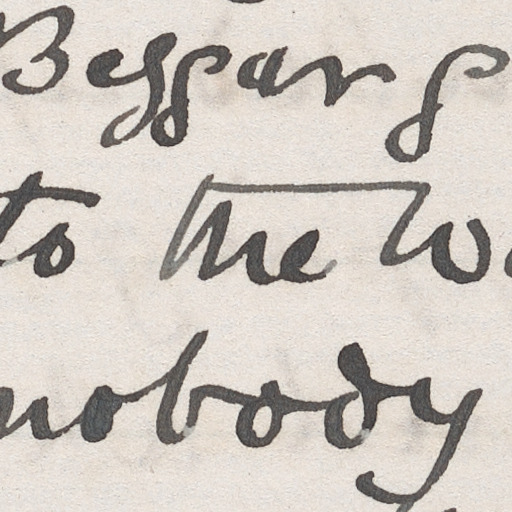 Beggars
to the wo
nobody